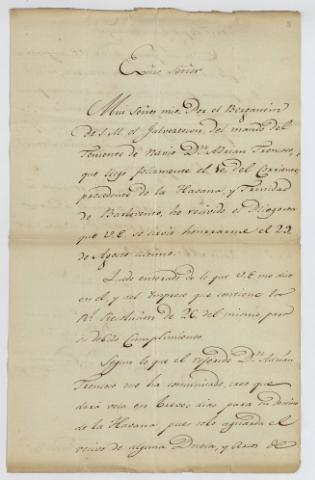 Exmo. Señor
Mui Señor mio. Por el Bergantin
de S.M. el Salvador, del mando del
Teniente de Navio Dn. Adrian Troncoso,
que llegó felizmente el 10, del Corriente
procedente de la Havana, y Trinidad
de Barlovento, he recivido el Pliego con
que V.E. se sirvio honrarme el 22
de Agosto ultimo.
Quedo enterado de lo que V.E. me dice
en el y del Impreso que contiene la
Rl. Resolucion de 26, del mismo para
su devido Cumplimiento.
Segun lo que el referido Dn. Adrian
Troncoso me ha comunicado, creo que
dará vela en breves dias para su destino
de la Havana pues solo aguarda el
recivo de alguna de